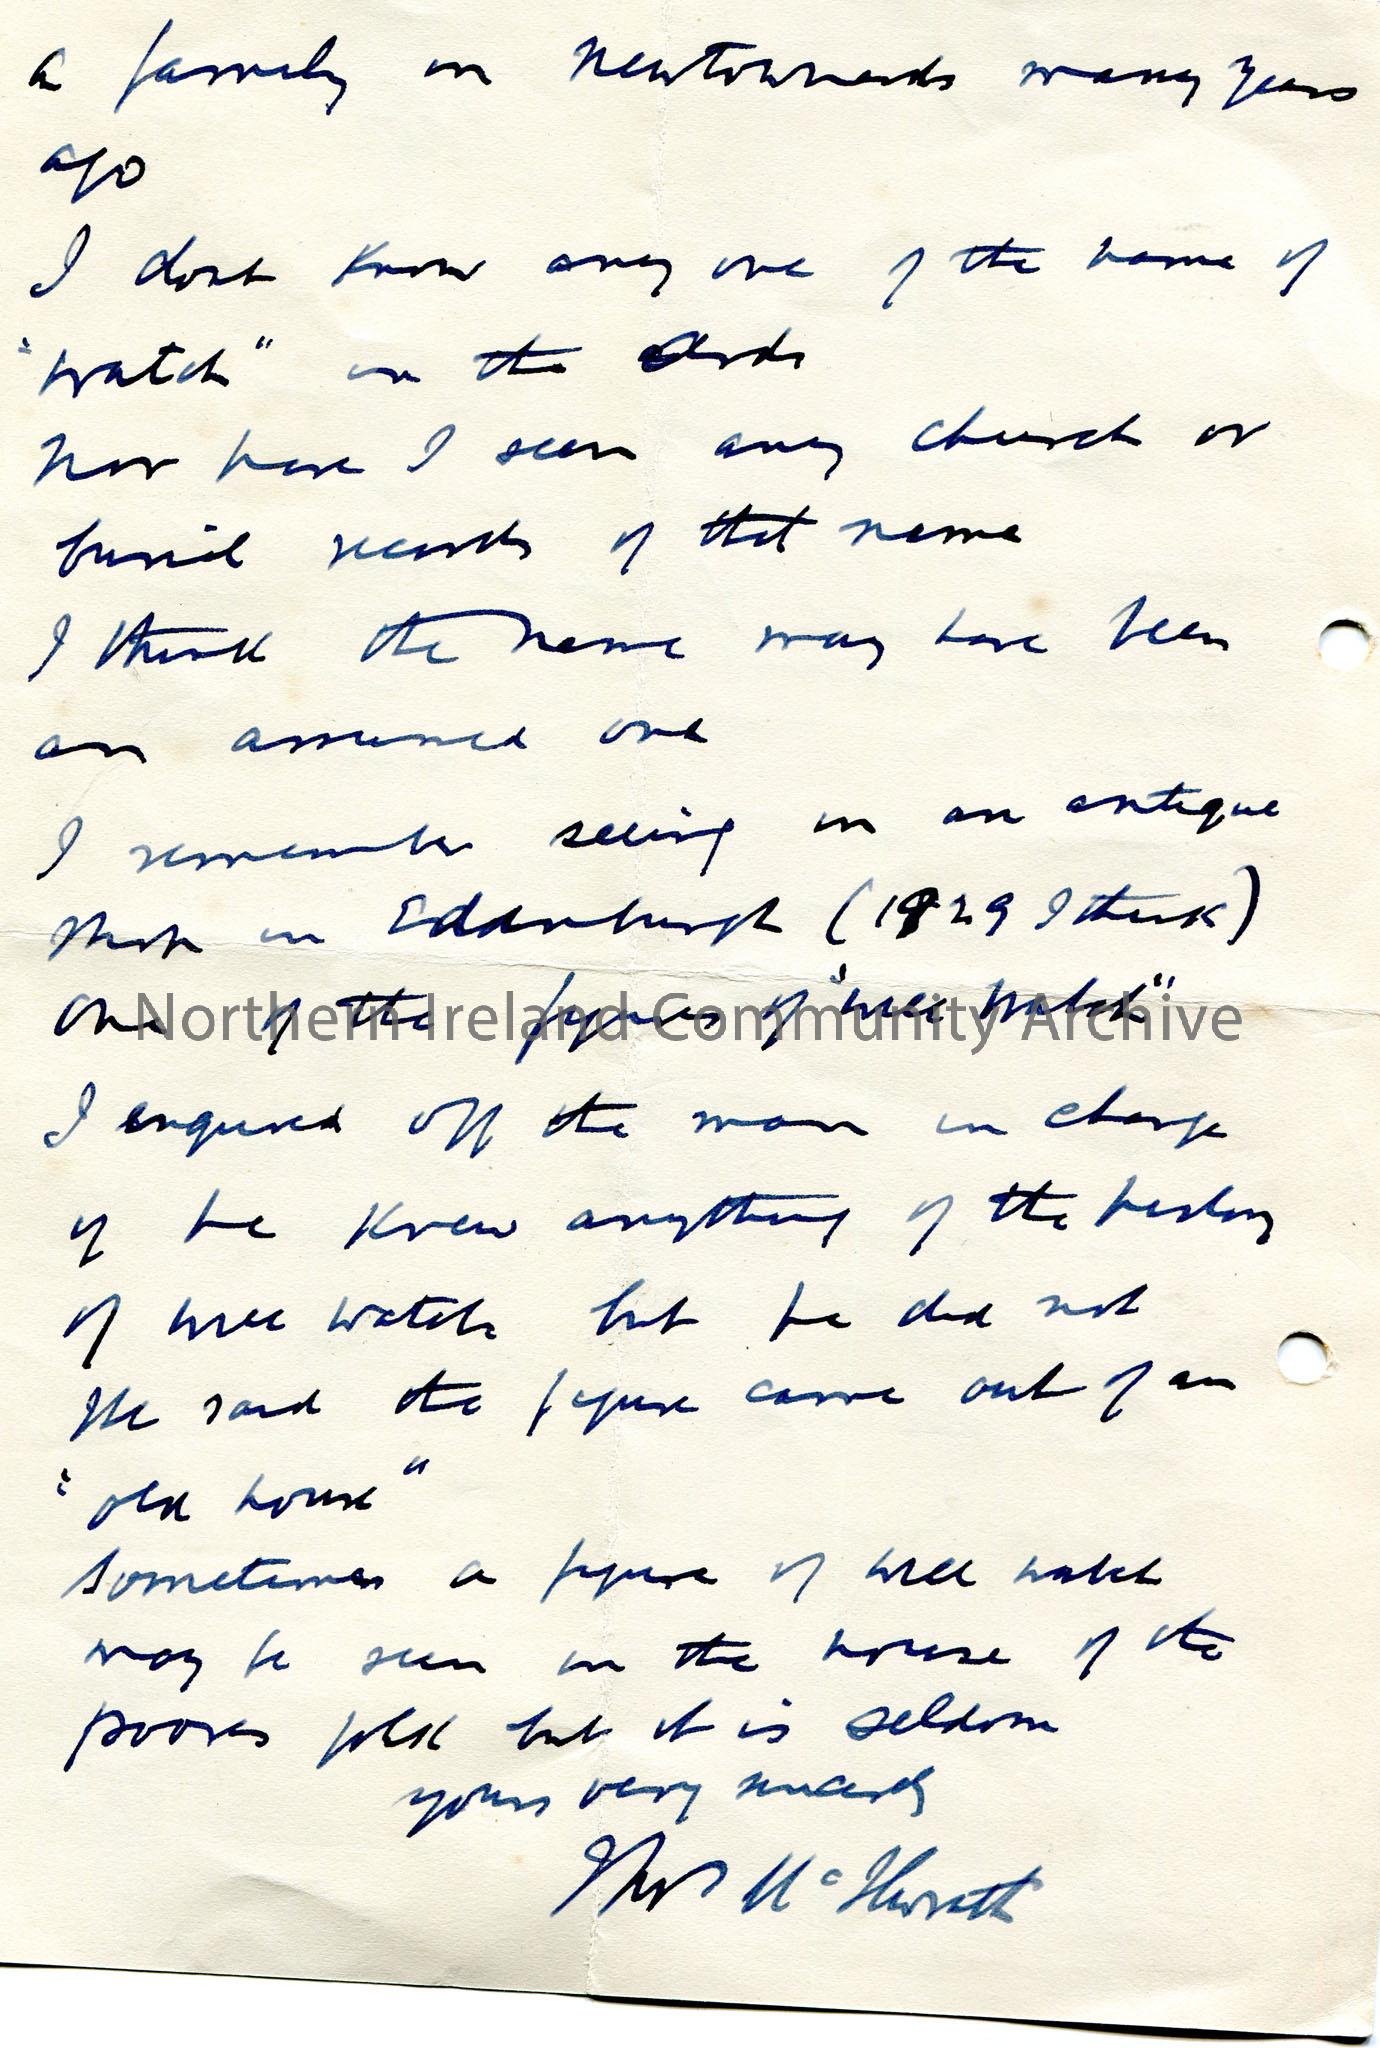 a family in Newtownards many years
ago
I dont know any one of the name of
"watch" in the Ards
Nor have I seen any church or
burial records of that name
I think the name may have been
an assumed one
I remember seeing in an antique
shop in Eddinburgh (1929 I think)
One of the figures of "wee Watch"
Northern Ireland Community Archive
I enquired off the man in charge
if he knew anything of the history
of wee watch but he did not
He said the figure came out of an
"old house"
Sometimes a figure of wee watch
may be seen in the house of the
poorer folk but it is seldom
yours very sincerely
Thos McIlwrath